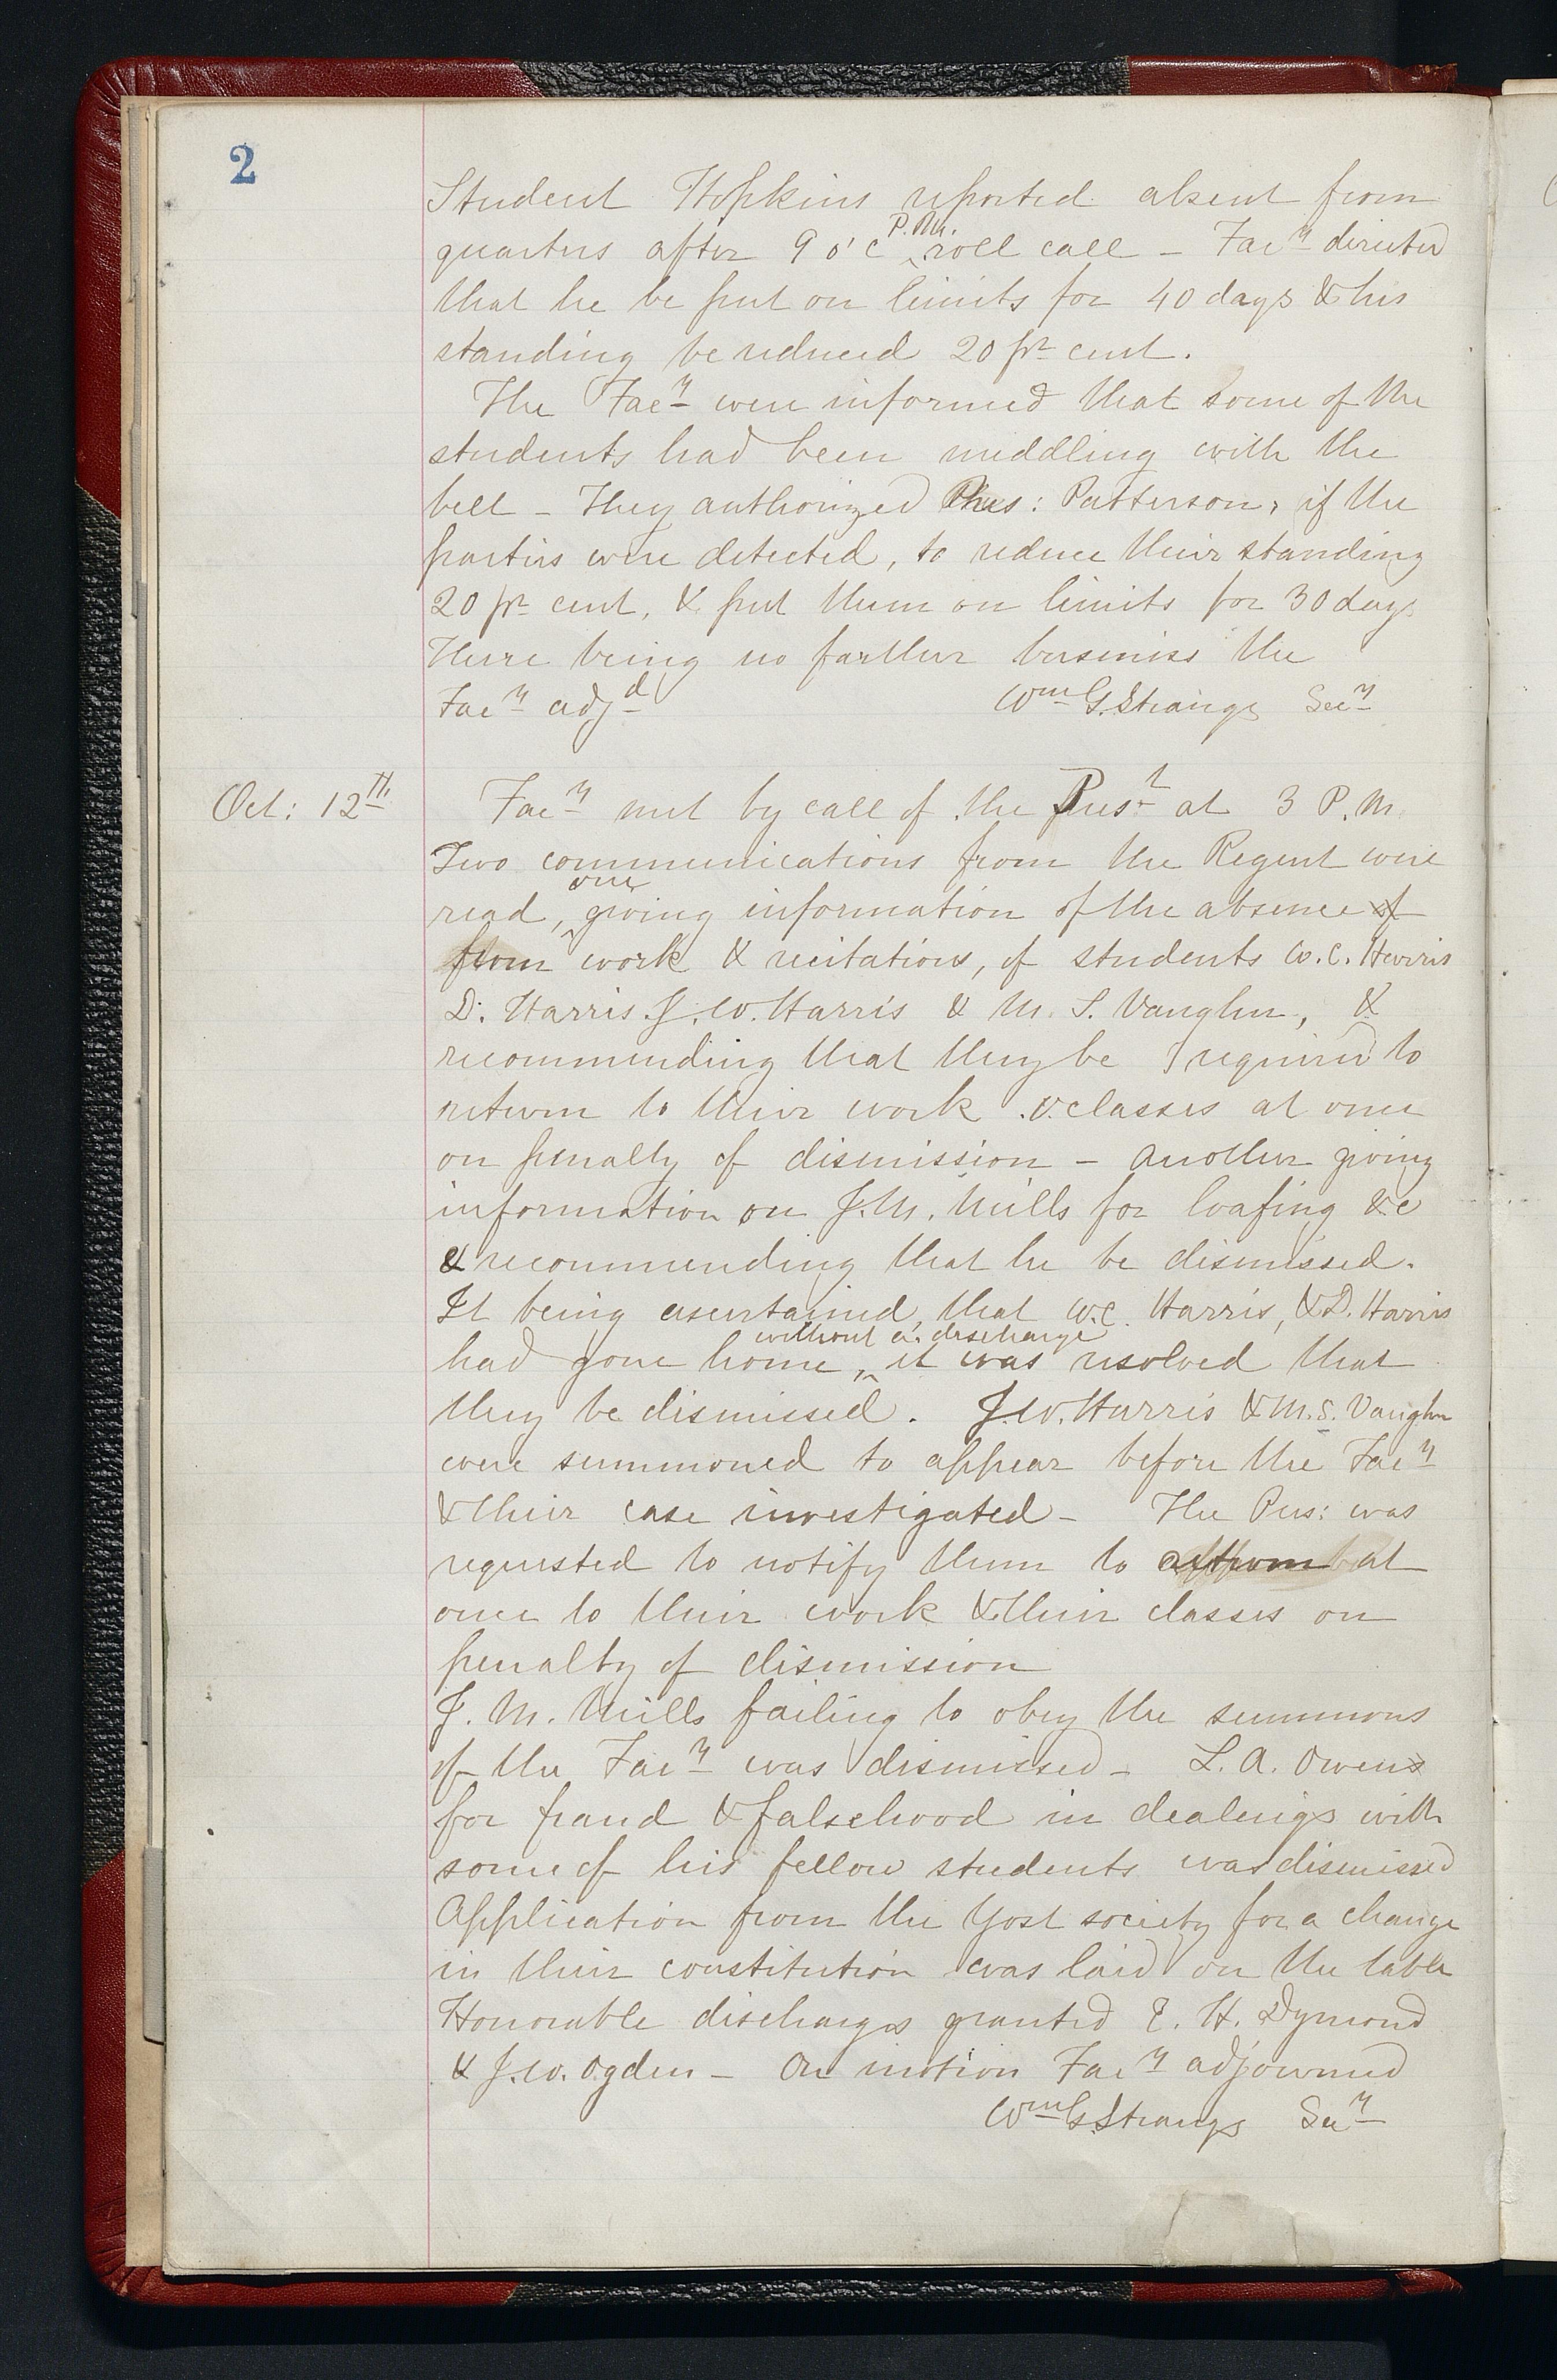 2
Student Hopkins reported absent from
P.M.
quarters after 9 o'c roll call – Facy directed
that he be put on limits for 40 days & his
standing be reduced 20 pr cent.
The Facy were informed that some of the
students had been meddling with the
bell – They authorized Pres: Patterson, if the
parties were detected, to reduce their standing
20 pr cent, & put them on limits for 30 days
There being no farther business the
Facy adjd Wm G. Strange Secy
Oct: 12th Facy met by call of the Prest at 3 P.M.
Two communications from the Regent were
one
read, giving information of the absence of
from work & recitations, of students W.C. Harris
D. Harris J.W. Harris & M. S. Vaughn, &
recommending that they be required to
return to their work & classes at once
on penalty of dismission – another giving
information on J.M. Mills for loafing &c
& recommending that he be dismissed.
It being asertained, that W.C. Harris, & D. Harris
without a discharge
had gone home, it was resolved that
they be dismissed. J.W. Harris & M.S. Vaughn
were summoned to appear before the Facy
& their case investigated – The Pres: was
requested to notify them to at
once to their work & their classes on
penalty of dismission
J. M. Mills failing to obey the summons
of the Facy was dismissed – L. A. Owens
for fraud & falsehood in dealings with
some of his fellow students was dismissed
Application from the Yost society for a change
in their constitution was laid on the table
Honorable discharges granted E. H. Dymond
& J.W. Ogden – On motion Facy adjourned
Wm G. Strange Secy